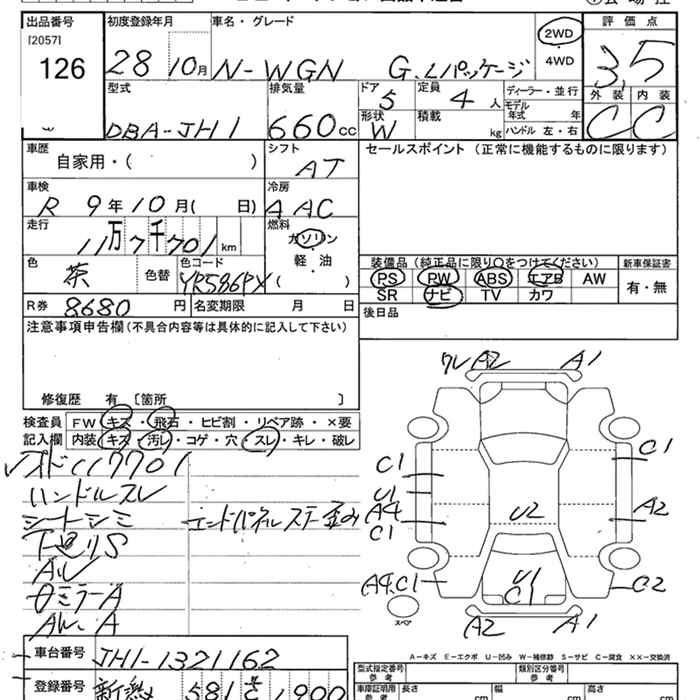 出品番号
[2057]
126
初度登録年月
28 10月
車名・グレード
N-WGN G.Lパッケージ
2WD
4WD
評価点
3.5
外装 内装
C C
型式
DBA-JH1
排気量
660cc
ドア
5
定員
4人
形状
W
積載
kg
ディーラー・並行
モデル年式 年
ハンドル 左・右
車歴
自家用・( )
シフト
AT
セールスポイント (正常に機能するものに限ります)
車検
R 9年10月( 日)
冷房
AAC
走行
11万7千701km
燃料
ガソリン
軽・油
( )
色
茶
色替
色コード
YR586PX
装備品 (純正品に限り○をつけてください)
PS PW ABS エアB AW
SR ナビ TV カワ
新車保証書
有・無
R券
8680円
名変期限 月 日
後日品
注意事項申告欄(不具合内容等は具体的に記入して下さい)
修復歴 有 〔箇所 〕
検査員
記入欄
FW キズ・飛石・ヒビ割・リペア跡・×要
内装 キズ・汚レ・コゲ・穴・スレ・キレ・破レ
ハンドルスレ
シートシミ
下廻りS
エンドパネルステー歪み
A2 A1
C1
U1
A4
C1
A4.C1
U2
U1
C1
C1
A2
C2
A2 A1
スペア
A-キズ E-エクボ U-凹み W-補修跡 S-サビ C-腐食 ××-交換済
車台番号
JH1-1321162
登録番号
581 1900
型式指定番号
参考
類別区分番号
参考
車庫証明用
参考
長さ cm
幅 cm
高さ cm